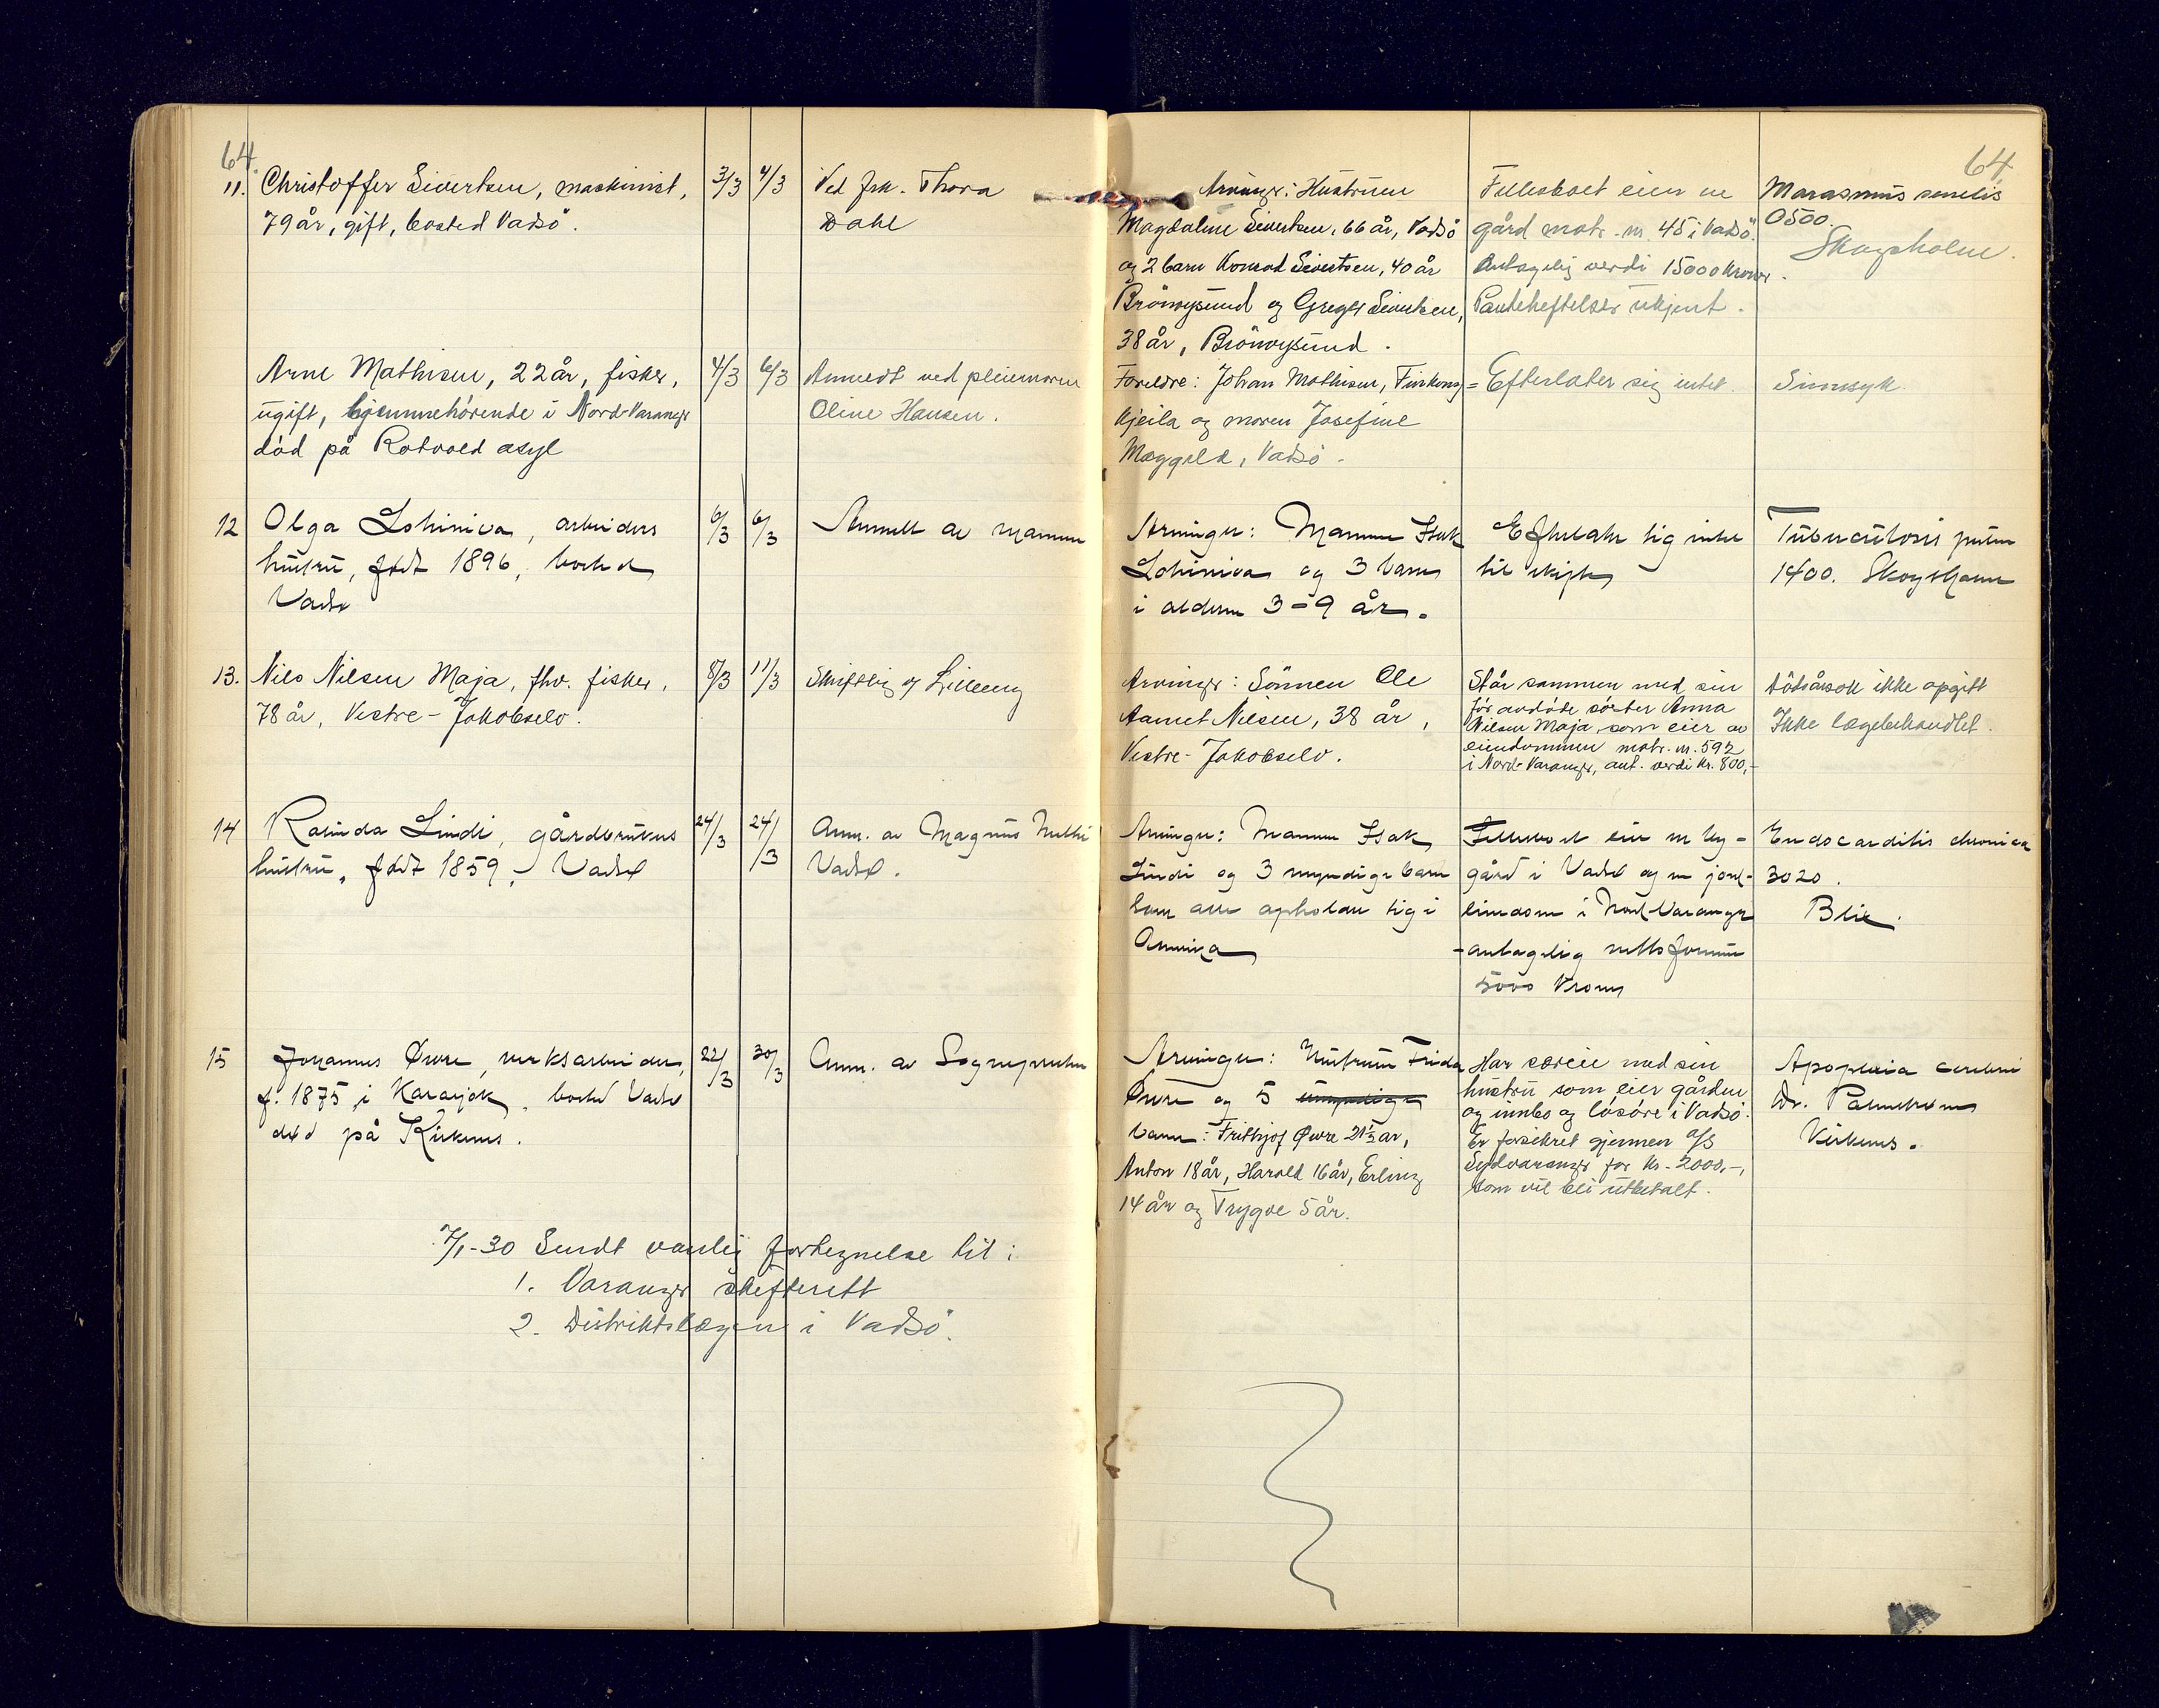 64.
11. Christoffer Sivertsen, maskinist, 3/3 4/3 Ved frk. Thora
79 år, gift, bosted Vadsö. Dahl
Arne Mathisen, 22 år, fisker, 4/3 6/3 Anmeldt ved pleiemoren
ugift, hjemmehörende i Nord-Varanger Oline Hansen.
död på Rotvold asyl
12 Olga Lohiniva, arbeiders 6/3 6/3 Anmeldt av mannen
hustru, født 1896, bosted
Vadsø
13. Nils Nilsen Maja, fhv. fisker, 8/3 11/3 Skriftlig af Lilleeng
78 år, Vestre-Jakobselv.
14 Lindi, gårdbrukers 24/3 24/3 Anm. av Magnus
hustru, født 1859, Vadsø Vadsø.
15 Johannes Øvre, verksarbeider, 22/3 30/3 Anm. av Sognepresten
f. 1875 i Karasjok, bosted Vadsø
død på Kirkenes.
7/1-30 Sendt vanlig fortegnelse til:
1. Varanger skifterett
2. Distriktslægen i Vadsö.
64.
Arvinger: Hustruen Fellesboet eier en Marasmus senilis
Magdaline Sivertsen, 66 år, Vadsö gård matr. nr. 45 i Vadsö. 0500.
og 2 barn Konrad Sivertsen, 40 år Antagelig verdi 15000 kroner. Skogsholm.
Brönnöysund og Greger Sivertsen, Panteheftelser ukjent.
38 år, Brönnöysund.
Foreldre: Johan Mathisen, Finkong= Efterlater sig intet. Sinnsyk.
kjeila og moren Josefine
Vadsö.
Arvinger: Mannen Isak Efterlater sig intet Tuberculosis pulm
Lohiniva og 3 barn til skifte 1400. Skogsholm
i alderen 3-9 år.
Arvinger: Sönnen Ole Står sammen med sin Dödsårsak ikke opgitt
Aamet Nilsen, 38 år, för avdöde söster Anna
Vestre-Jakobselv. Nilsen Maja, som eier av Ikke lægebehandlet.
eiendommen matr. nr. 592
i Nord-Varanger, ant. verdi kr. 800,-
Arvinger: Mannen Isak Fellesboet eier en by- Endocarditis chronica
Lindi og 3 myndige barn gård i Vadsø og en jord- 3020.
som alle opholder sig i eiendom i Nord-Varanger Blix.
Amerika - antagelig netto formue
5000 kroner
Arvinger: Hustruen Frida Har særeie med sin Apoplexia cerebri
Øvre og 5 umyndige hustru som eier gården Dr. Palmstrøm
barn: Frithjof Øvre 21½ år, og innbo og lösöre i Vadsö. Kirkenes.
Anton 18 år, Harald 16 år, Erling Er forsikret gjennem A/S
14 år og Trygve 5 år. Sydvaranger for kr. 2000,-,
som vil bli utbetalt.